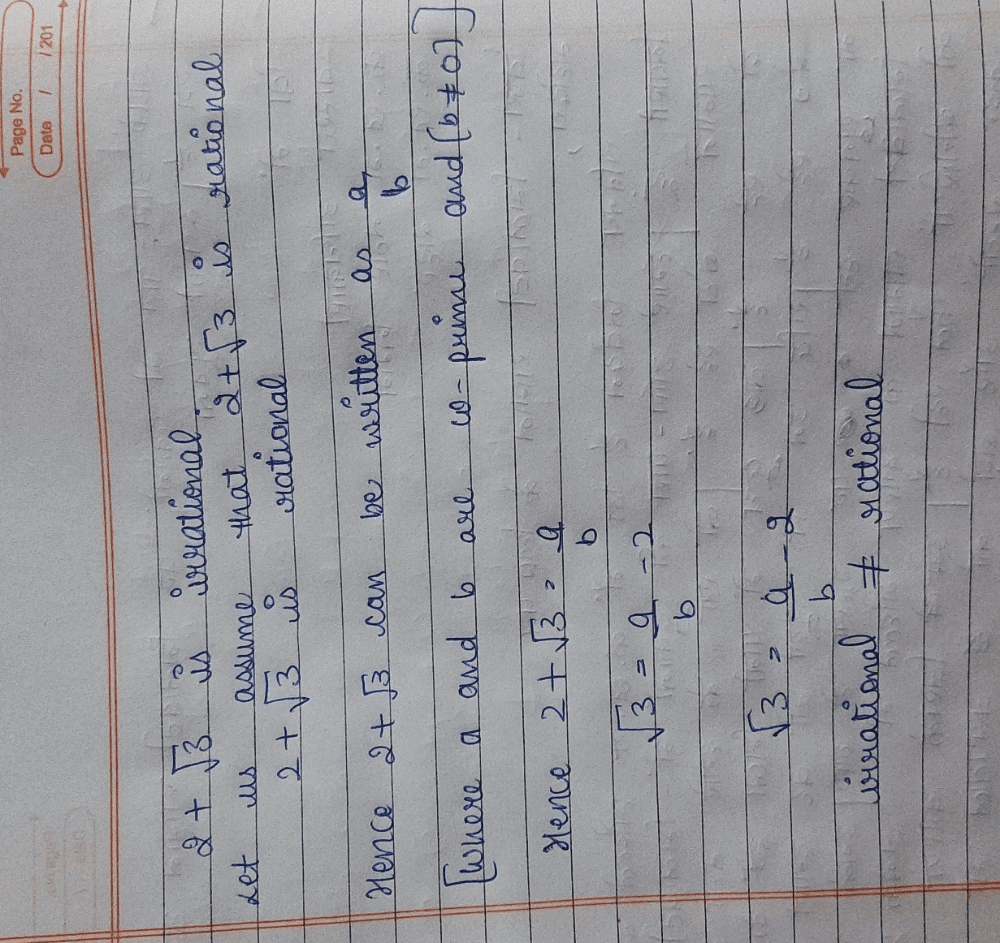 Page No.
Date / / 201
2 + √3 is irrational.
Let us assume that 2+√3 is rational
2 + √3 is rational
Hence 2+√3 can be written as a/b
[where a and b are co-prime and (b≠0)]
Hence 2+√3 = a/b
√3 = a/b - 2
√3 = a/b - 2
irrational ≠ rational